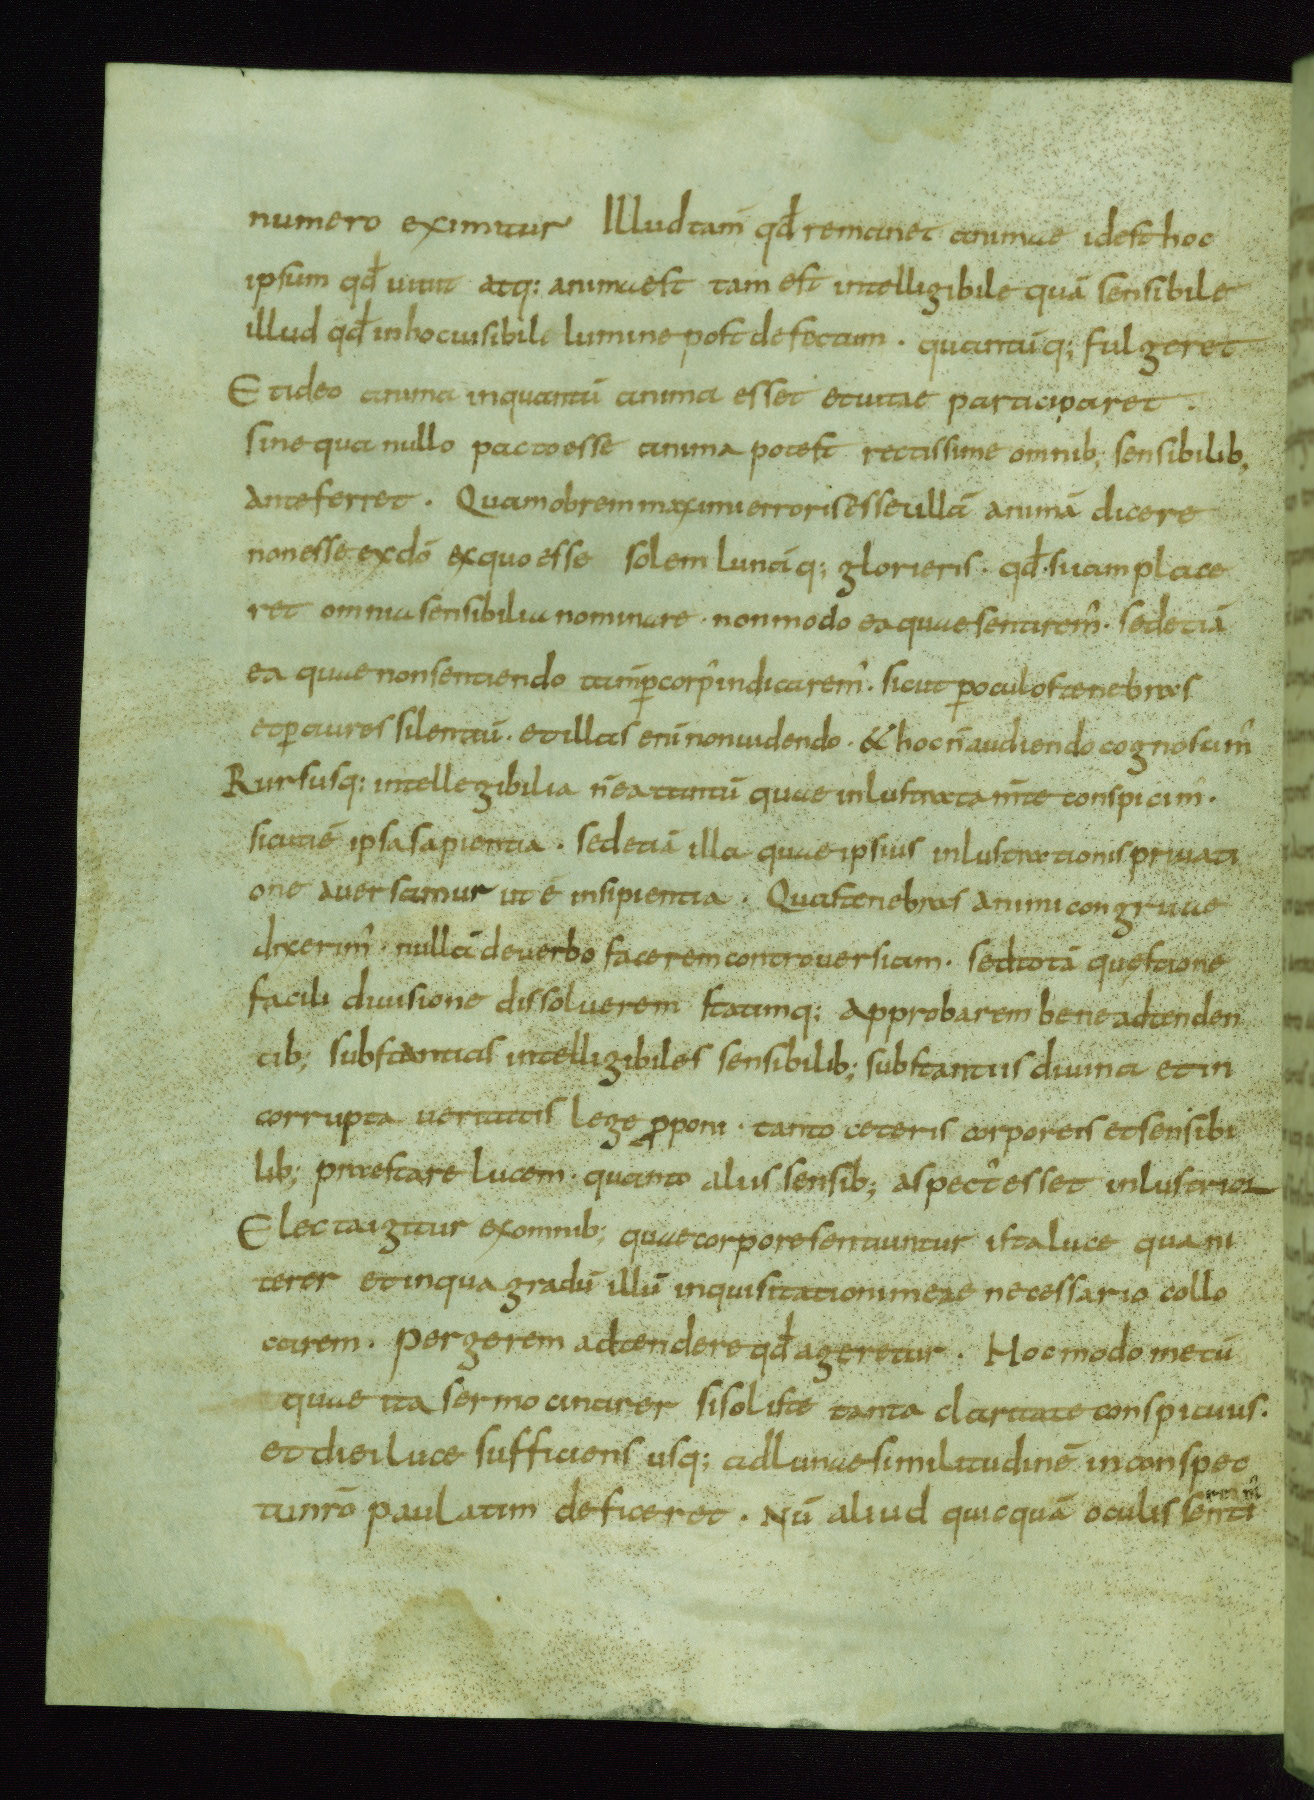 numero eximitur Illud tam̄ qđ remanet animae idest hoc
ipsum qđ uiuit atq: anima est tam est intelligibile quā sensibile
illud qđ in hoc uisibili lumine post defectum · quantūq; fulgeret
Et ideo anima inquantū anima esset et uitae participaret ·
sine qua nullo pacto esse anima potest rectissime omnib; sensibilib;
anteferret · Quamobrem maximi erroris esse ullā animā dicere
non esse ex dō ex quo esse solem lunāq; glorieris · qđ · si iam place
ret omnia sensibilia nominare · non modo ea quae sentirem̄ · sed etiā
ea quae non sentiendo tam̄ p̄ corp̄ indicarem̄ · sicut p̄ oculos tenebras
et p̄ aures silentiū · et illas enī non uidendo · & hoc n̄ audiendo cognoscim̄
Rursusq: intellegibilia n̄ ea tantū quae inlustrata m̄te conspicim̄ ·
sicuti ē ipsa sapientia · sed etiā illa quae ipsius inlustrationis priuati
one auersamur ut ē insipientia · Quas tenebras animi congruae
dixerim̄ · nullā de uerbo facerem controuersiam · sed totā quęstione
facili diuisione dissoluerem statimq; approbarem bene adtenden
tib; substantias intelligibiles sensibilib; substantiis diuina et in
corrupta ueritatis lege p̄poni · tanto ceteris corporeis et sensibi
lib; praestare lucem · quanto aliis sensib; aspect̄ esset inlustrior
Electa igitur ex omnib; quae corpore sentiuntur ista luce qua ni
terer et in qua gradū illū inquisitationi meae necessario collo
carem · Pergerem adtendere qđ ageretur · Hoc modo mecū
quae ita sermocinarer si sol iste tanta claritate conspicuus ·
et diei luce sufficiens usq; ad lunae similitudinē in conspec
tu nr̄o paulatim deficeret · Nū aliud quicquā oculis senti